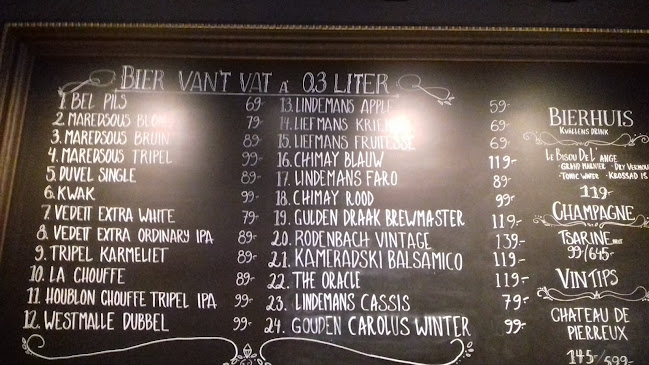 BIER VAN'T VAT À 0,3 LITER
1. BEL PILS 69-
2. MAREDSOUS BLOND 79-
3. MAREDSOUS BRUIN 89-
4. MAREDSOUS TRIPEL 99-
5. DUVEL SINGLE 89-
6. KWAK 99-
7. VEDETT EXTRA WHITE 79-
8. VEDETT EXTRA ORDINARY IPA 89-
9. TRIPEL KARMELIET 89-
10. LA CHOUFFE 89-
11. HOUBLON CHOUFFE TRIPEL IPA 99-
12. WESTMALLE DUBBEL 99-
13. LINDEMANS APPLE 59-
14. LIEFMANS KRIEK 69-
15. LIEFMANS FRUITESSE 69-
16. CHIMAY BLAUW 119-
17. LINDEMANS FARO 89-
18. CHIMAY ROOD 99-
19. GULDEN DRAAK BREWMASTER 119-
20. RODENBACH VINTAGE 139-
21. KAMERADSKI BALSAMICO 119-
22. THE ORACLE 119-
23. LINDEMANS CASSIS 79-
24. GOUDEN CAROLUS WINTER 99-
BIERHUIS
DRINK
LE BISOU DE L'ANGE
- GRAND MARNIER - DRY VERMOU
- TONIC WATER - KROSSAD IS
119-
CHAMPAGNE
TSARINE
99/645-
VINTIPS
CHATEAU DE
PIERREUX
145-/599-